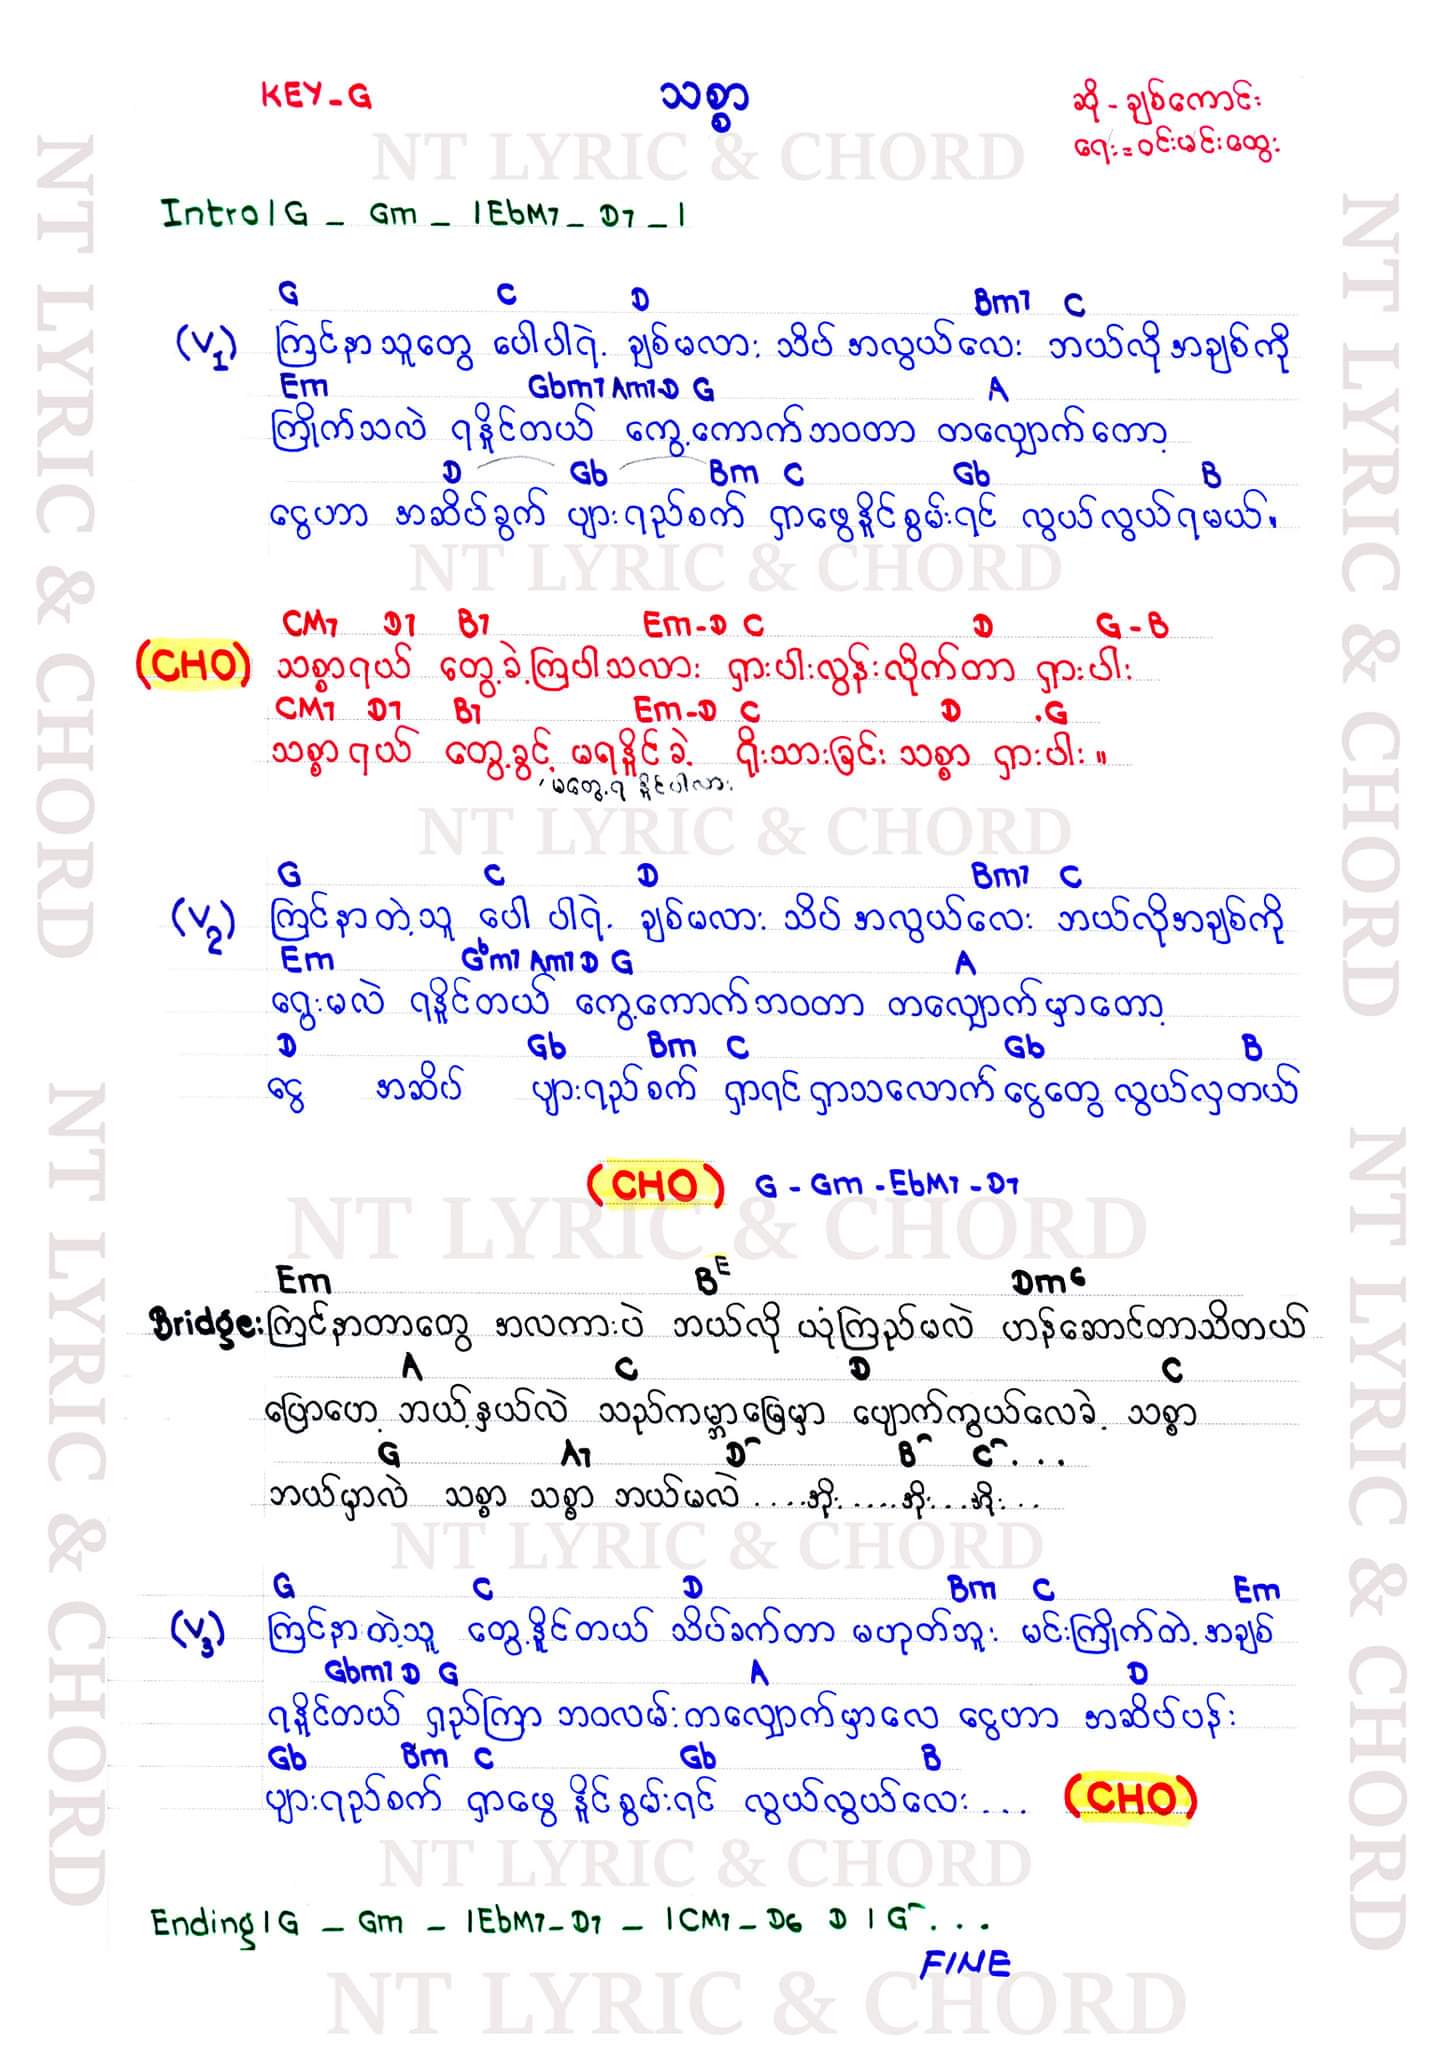 KEY-G
သစ္စာ
ဆို - ချစ်ကောင်း
ရေး = ဝင်းမင်းထွေး
NT LYRIC & CHORD
Intro | G _ Gm _ | EbM7 _ D7 _ |
G C D Bm7 C
(V1) ကြင်နာသူတွေ ပေါပါရဲ့ ချစ်မလား သိပ်အလွယ်လေး ဘယ်လိုအချစ်ကို
Em Gbm7 Am7-D G A
ကြိုက်သလဲ ရနိုင်တယ် ကွေ့ကောက်ဘဝတာ တလျှောက်တော့
D Gb Bm C Gb B
ငွေဟာ အဆိပ်ခွက် ပျားရည်စက် ရှာဖွေနိုင်စွမ်းရင် လွယ်လွယ်ရမယ်။
NT LYRIC & CHORD
CM7 D7 B7 Em-D C D G-B
(CHO) သစ္စာရယ် တွေ့ခဲ့ကြပါသလား ရှားပါးလွန်းလိုက်တာ ရှားပါး
CM7 D7 B7 Em-D C D .G
သစ္စာရယ် တွေ့ခွင့် မရနိုင်ခဲ့ ရိုးသားခြင်း သစ္စာ ရှားပါး။
မတွေ့ရ နိုင်ပါလား
NT LYRIC & CHORD
G C D Bm7 C
(V2) ကြင်နာတဲ့သူ ပေါ ပါရဲ့ ချစ်မလား သိပ်အလွယ်လေး ဘယ်လိုအချစ်ကို
Em Gbm7 Am7 D G A
ရွေးမလဲ ရနိုင်တယ် ကွေ့ကောက်ဘဝတာ တလျှောက်မှာတော့
D Gb Bm C Gb B
ငွေ အဆိပ် ပျားရည်စက် ရှာရင်ရှာသလောက် ငွေတွေ လွယ်လှတယ်
(CHO) G - Gm - EbM7 - D7
NT LYRIC & CHORD
Em BE Dm6
Bridge: ကြင်နာတာတွေ အလကားပဲ ဘယ်လို ယုံကြည်မလဲ ဟန်ဆောင်တာသိတယ်
A C D C
ပြောဟေ့ ဘယ့်နှယ်လဲ သည်ကမ္ဘာမြေမှာ ပျောက်ကွယ်လေခဲ့ သစ္စာ
G A7 D B C ...
ဘယ်မှာလဲ သစ္စာ သစ္စာ ဘယ်မလဲ ....အိုး.....အိုး...အိုး...
NT LYRIC & CHORD
G C D Bm C Em
(V3) ကြင်နာတဲ့သူ တွေ့နိုင်တယ် သိပ်ခက်တာ မဟုတ်ဘူး မင်းကြိုက်တဲ့အချစ်
Gbm7 D G A D
ရနိုင်တယ် ရှည်ကြာ ဘဝလမ်းတလျှောက်မှာလေ ငွေဟာ အဆိပ်ပန်း
Gb Bm C Gb B
ပျားရည်စက် ရှာဖွေ နိုင်စွမ်းရင် လွယ်လွယ်လေး ... (CHO)
NT LYRIC & CHORD
Ending | G _ Gm _ | EbM7 _ D7 _ | CM7 _ D6 D | G ...
FINE
NT LYRIC & CHORD
NT LYRIC & CHORD
NT LYRIC & CHORD
NT LYRIC & CHORD
NT LYRIC & CHORD